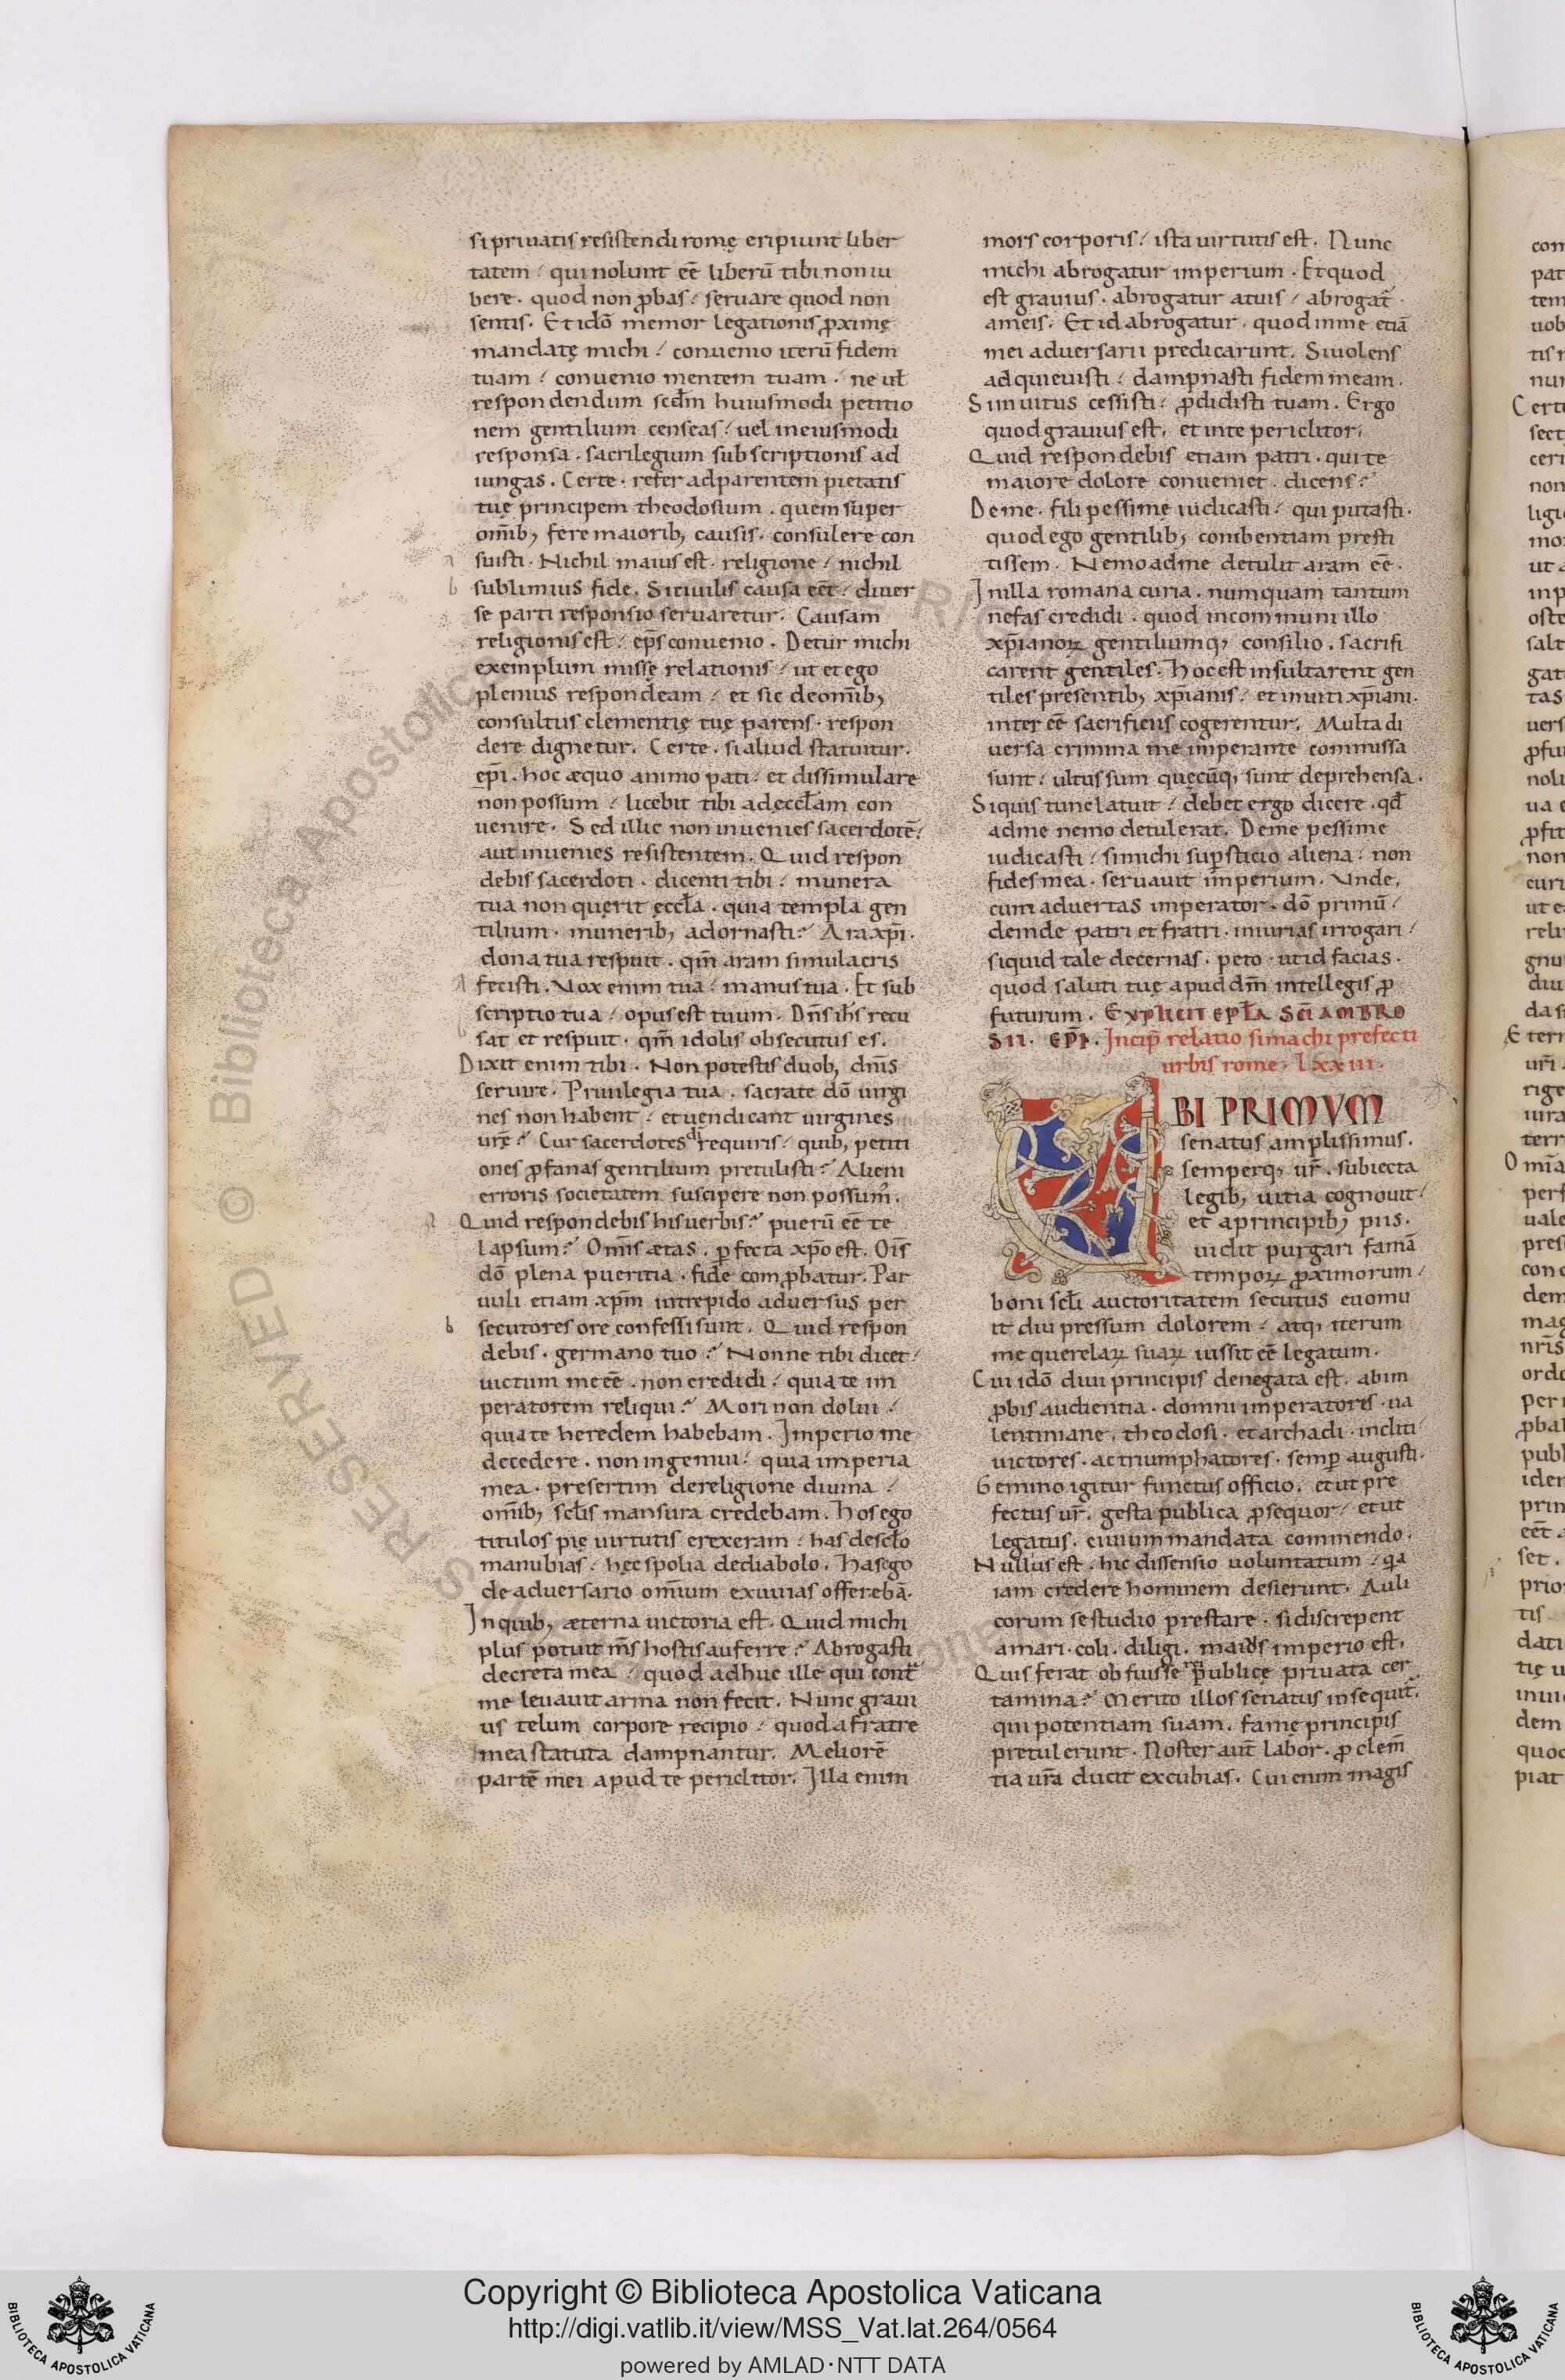 si priuatis resistendi romę eripiunt liber
tatem / qui nolunt eē liberū tibi non iu
bere · quod non ꝓbas / seruare quod non
sentis · Et idō memor legationis ꝓximę
mandatę michi / conuenio iterū fidem
tuam / conuenio mentem tuam · ne uł
respondendum scdm̄ huiusmodi petitio
nem gentilium censeas / uel in eiusmodi
responsa · sacrilegium subscriptionis ad
iungas · Certe · refer ad parentem pietatis
tuę principem theodosium · quem super
om̄ib; fere maiorib; causis · consulere con
suisti · Nichil maius est · religione / nichil
sublimius fide · Si ciuilis causa eēt / diuer
se parti responsio seruaretur · Causam
religionis est / ep̄s conuenio · Detur michi
exemplum missę relationis / ut et ego
plenius respondeam / et sic de om̄ib;
consultus clementię tuę parens · respon
dere dignetur · Certe · si aliud statuitur ·
ep̄i · hoc æquo animo pati / et dissimulare
non possum / licebit tibi ad ęccłam con
uenire · Sed illic non inuenies sacerdotē /
aut inuenies resistentem · Quid respon
debis sacerdoti · dicenti tibi / munera
tua non quęrit ęccła · quia templa gen
tilium · munerib; adornasti? Ara xp̄i ·
dona tua respuit · qm̄ aram simulacris
fecisti · Vox enim tua / manus tua · Et sub
scriptio tua / opus est tuum · Dn̄s ih̄s recu
sat et respuit · qm̄ idolis obsecutus es ·
Dixit enim tibi · Non potestis duob; dn̄is
seruire · Priuilegia tua · sacrate dō uirgi
nes non habent / et uendicant uirgines
urę̄? Cur sacerdotes dī requiris / quib; petiti
ones ꝓfanas gentilium pretulisti? Alieni
erroris societatem suscipere non possum̓ ·
Quid respondebis his uerbis? puerū eē te
lapsum? Om̄is ætas · ꝑfecta xp̄o est · Oīs
dō plena pueritia · fide comꝓbatur · Par
uuli etiam xp̄m intrepido aduersus per
secutores ore confessi sunt · Quid respon
debis · germano tuo? Nonne tibi dicet /
uictum me eē · non credidi / quia te im
peratorem reliqui? Mori non dolui /
quia te heredem habebam · Imperio me
decedere · non ingemui / quia imperia
mea · presertim de religione diuina /
om̄ib; scłis mansura credebam · Hos ego
titulos pię uirtutis erexeram / has de scło
manubias / hęc spolia de diabolo · Has ego
de aduersario om̄ium exuuias offerebā ·
In quib; æterna uictoria est · Quid michi
plus potuit m̄s hostis auferre? Abrogasti
decreta mea / quod adhuc ille qui cont̄
me leuauit arma non fecit · Nunc graui
us telum corpore recipio / quod a fratre
mea statuta dampnantur · Meliorē
partē mei apud te periclitor · Illa enim
mors corporis / ista uirtutis est · Nunc
michi abrogatur imperium · Et quod
est grauius · abrogatur a tuis / abrogat̄ ·
a meis · Et id abrogatur · quod in me etiā
mei aduersarii predicarunt · Si uolens
adquieuisti / dampnasti fidem meam ·
Si inuitus cessisti / ꝓdidisti tuam · Ergo
quod grauius est · et in te periclitor ·
Quid respondebis etiam patri · qui te
maiore dolore conueniet · dicens?
De me · fili pessime iudicasti / qui putasti ·
quod ego gentilib; conibentiam presti
tissem · Nemo ad me detulit aram eē ·
In illa romana curia · numquam tantum
nefas credidi · quod in communi illo
xp̄ianoꝝ gentiliumq; consilio · sacrifi
carent gentiles · Hoc est insultarent gen
tiles presentib; xp̄ianis / et inuiti xp̄iani ·
inter eē sacrificiis cogerentur · Multa di
uersa crimina me imperante commissa
sunt / ultus sum quęcūq; sunt deprehensa ·
Si quis tunc latuit / debet ergo dicere · qđ
ad me nemo detulerat · De me pessime
iudicasti / si michi suꝑsticio aliena · non
fides mea · seruauit imperium · Vnde ·
cum aduertas imperator · dō primū /
deinde patri et fratri · iniurias irrogari /
siquid tale decernas · peto · ut id facias ·
quod saluti tuę apud dm̄ intellegis ꝓ
futurum · EXPLICIT EPŁA SC̄I AMBRO
SII · EP̄I · Incip̄ relatio simachi prefecti
urbis rome · LXXIII ·
VBI PRIMVM
senatus amplissimus ·
semperq; ur̄ · subiecta
legib; uitia cognouit /
et a principib; piis ·
uidit purgari famā
tempoꝝ ꝓximorum /
boni scłi auctoritatem secutus euomu
it diu pressum dolorem / atq; iterum
me querelaꝝ suaꝝ iussit eē legatum ·
Cui idō diui principis denegata est · ab im
ꝓbis audientia · domni imperatores · ua
lentiniane · theodosi · et archadi · incliti
uictores · ac triumphatores · semꝑ augusti ·
Gemino igitur functus officio · et ut pre
fectus ur̄ · gesta publica ꝓsequor / et ut
legatus · ciuium mandata commendo ·
Nullus est · hic dissensio uoluntatum / qa
iam credere homines desierunt · Auli
corum se studio prestare · si discrepent
amari · coli · diligi · maius imperio est ·
Quis ferat obfuisse rei publicę priuata cer
tamina? Merito illos senatus insequit̄ ·
qui potentiam suam · famę principis
pretulerunt · Noster aut̄ labor · ꝓ clem̄
tia ur̄a ducit excubias · Cui enim magis
Copyright © Biblioteca Apostolica Vaticana
http://digi.vatlib.it/view/MSS_Vat.lat.264/0564
powered by AMLAD·NTT DATA